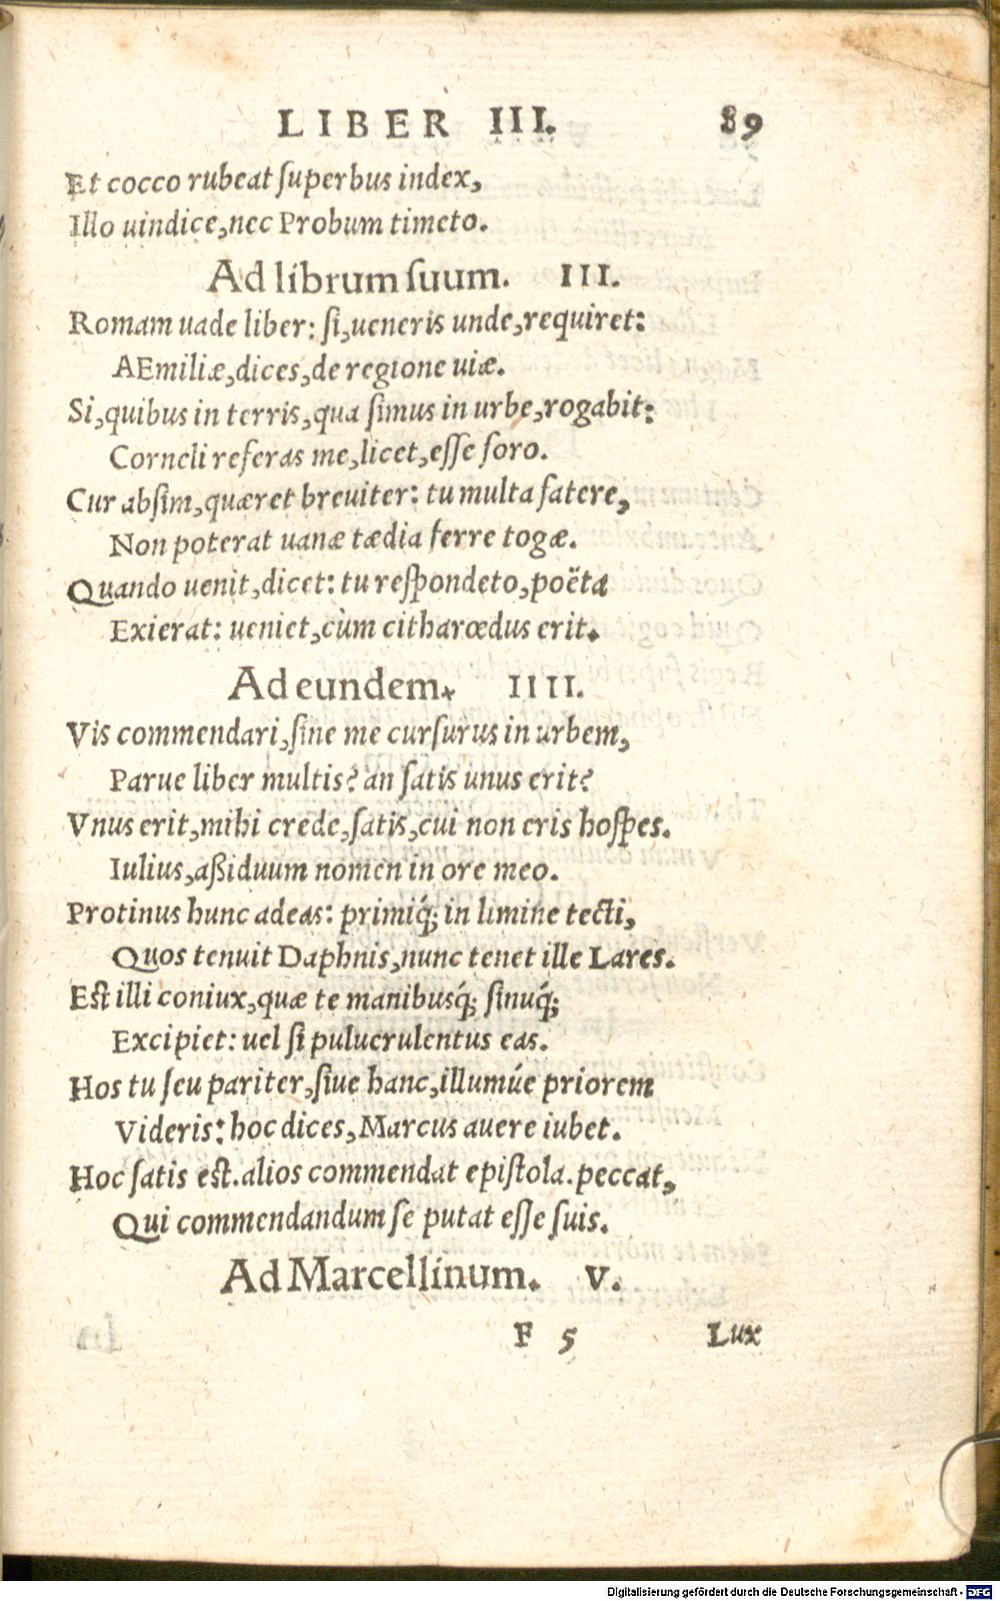 LIBER III. 89
Et cocco rubeat ſuperbus index,
Illo uindice, nec Probum timeto.
Ad librum ſuum. III.
Romam uade liber: ſi, ueneris unde, requiret:
AEmiliæ, dices, de regione uiæ.
Si, quibus in terris, qua ſimus in urbe, rogabit:
Corneli referas me, licet, eſſe foro.
Cur abſim, quæret breuiter: tu multa fatere,
Non poterat uanæ tædia ferre togæ.
Quando uenit, dicet: tu reſpondeto, poëta
Exierat: ueniet, cùm citharœdus erit.
Ad eundem. IIII.
Vis commendari, ſine me curſurus in urbem,
Parue liber multis? an ſatis unus erit?
Vnus erit, mihi crede, ſatis, cui non eris hoſpes.
Iulius, aßiduum nomen in ore meo.
Protinus hunc adeas: primiq́; in limine tecti,
Quos tenuit Daphnis, nunc tenet ille Lares.
Eſt illi coniux, quæ te manibusq́; ſinuq́;
Excipiet: uel ſi puluerulentus eas.
Hos tu ſeu pariter, ſiue hanc, illumúe priorem
Videris: hoc dices, Marcus auere iubet.
Hoc ſatis eſt. alios commendat epiſtola. peccat,
Qui commendandum ſe putat eſſe ſuis.
Ad Marcellinum. V.
F 5 Lux
Digitalisierung gefördert durch die Deutsche Forschungsgemeinschaft - DFG